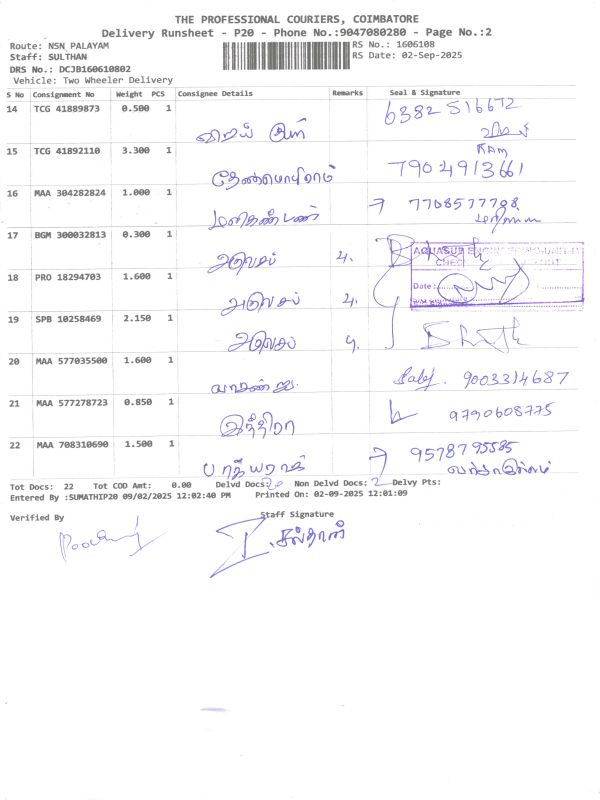 THE PROFESSIONAL COURIERS, COIMBATORE
Delivery Runsheet - P20 - Phone No.:9047080280 - Page No.:2
Route: NSN_PALAYAM RS No.: 1606108
Staff: SULTHAN RS Date: 02-Sep-2025
DRS No.: DCJB160610802
Vehicle: Two Wheeler Delivery
S No Consignment No Weight PCS Consignee Details Remarks Seal & Signature
14 TCG 41889873 0.500 1 6382516672
15 TCG 41892110 3.300 1 RAM
7904913661
16 MAA 304282824 1.000 1 → 7708577798
17 BGM 300032813 0.300 1
அருவசப் 4.
AQUASUB ENGINEERING
Date :
18 PRO 18294703 1.600 1
அருவசப் 4.
19 SPB 10258469 2.150 1
அருவசப் 4.
20 MAA 577035500 1.600 1 9003314687
21 MAA 577278723 0.850 1
இந்திரா 9790608775
22 MAA 708310690 1.500 1 9578795585
Tot Docs: 22 Tot COD Amt: 0.00 Delvd Docs: 20 Non Delvd Docs: 2 Delvy Pts:
Entered By :SUMATHIP20 09/02/2025 12:02:40 PM Printed On: 02-09-2025 12:01:09
Verified By Staff Signature
சுல்தான்